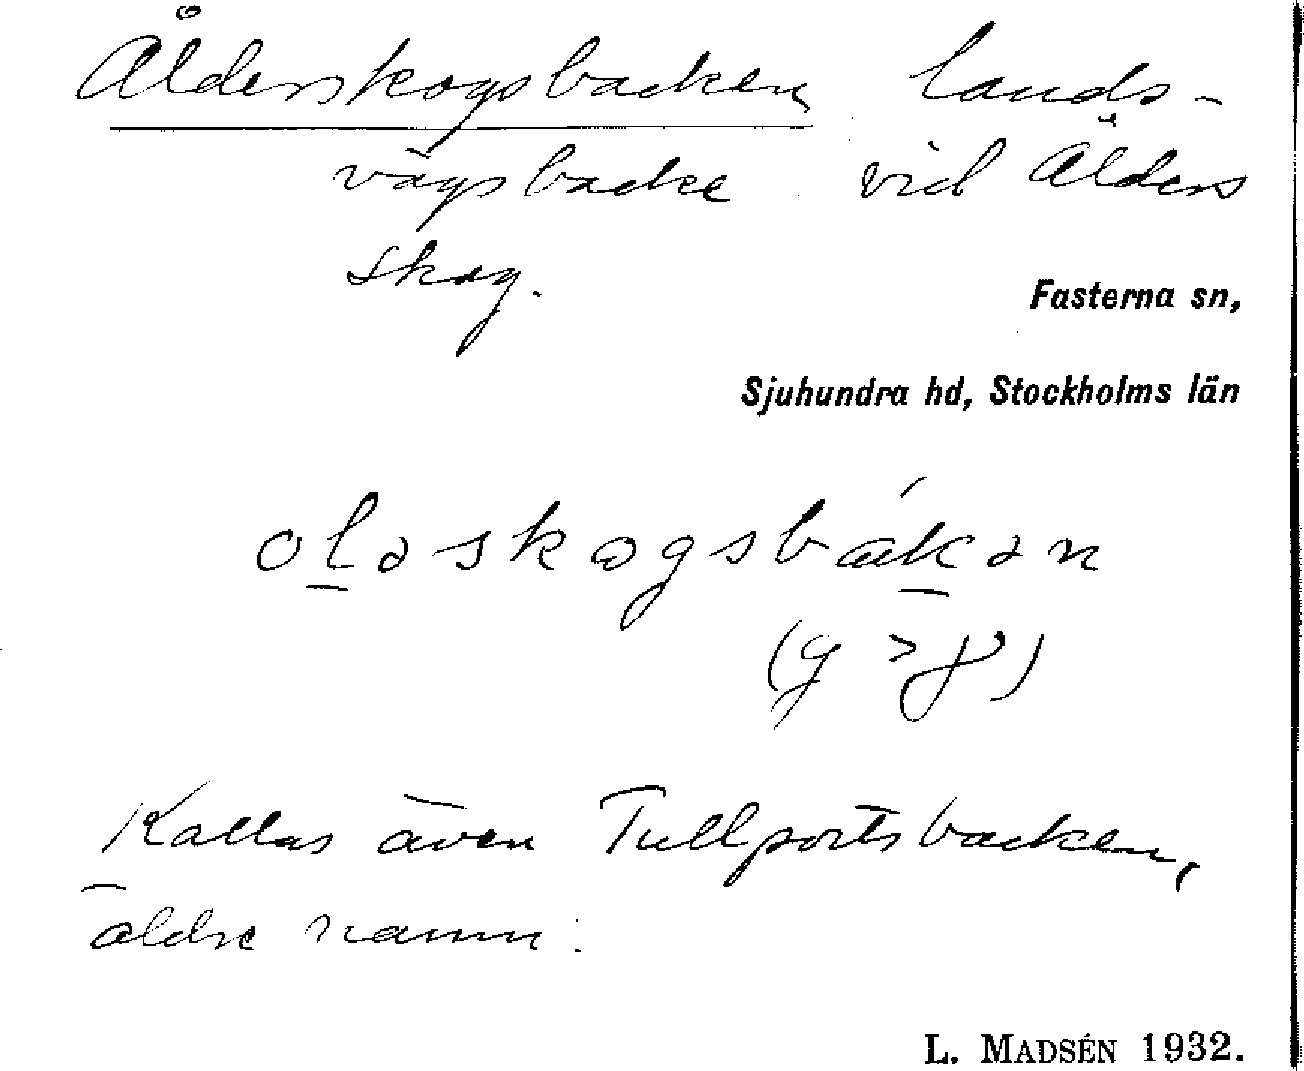 Ålderskogsbacken lands-
vägsbacke vid Ålders
skog.
Fasterna sn,
Sjuhundra hd, Stockholms län
oləskogsbákən
(g > ɣ)
Kallas även Tullportsbacken,
äldre namn.
L. MADSÉN 1932.